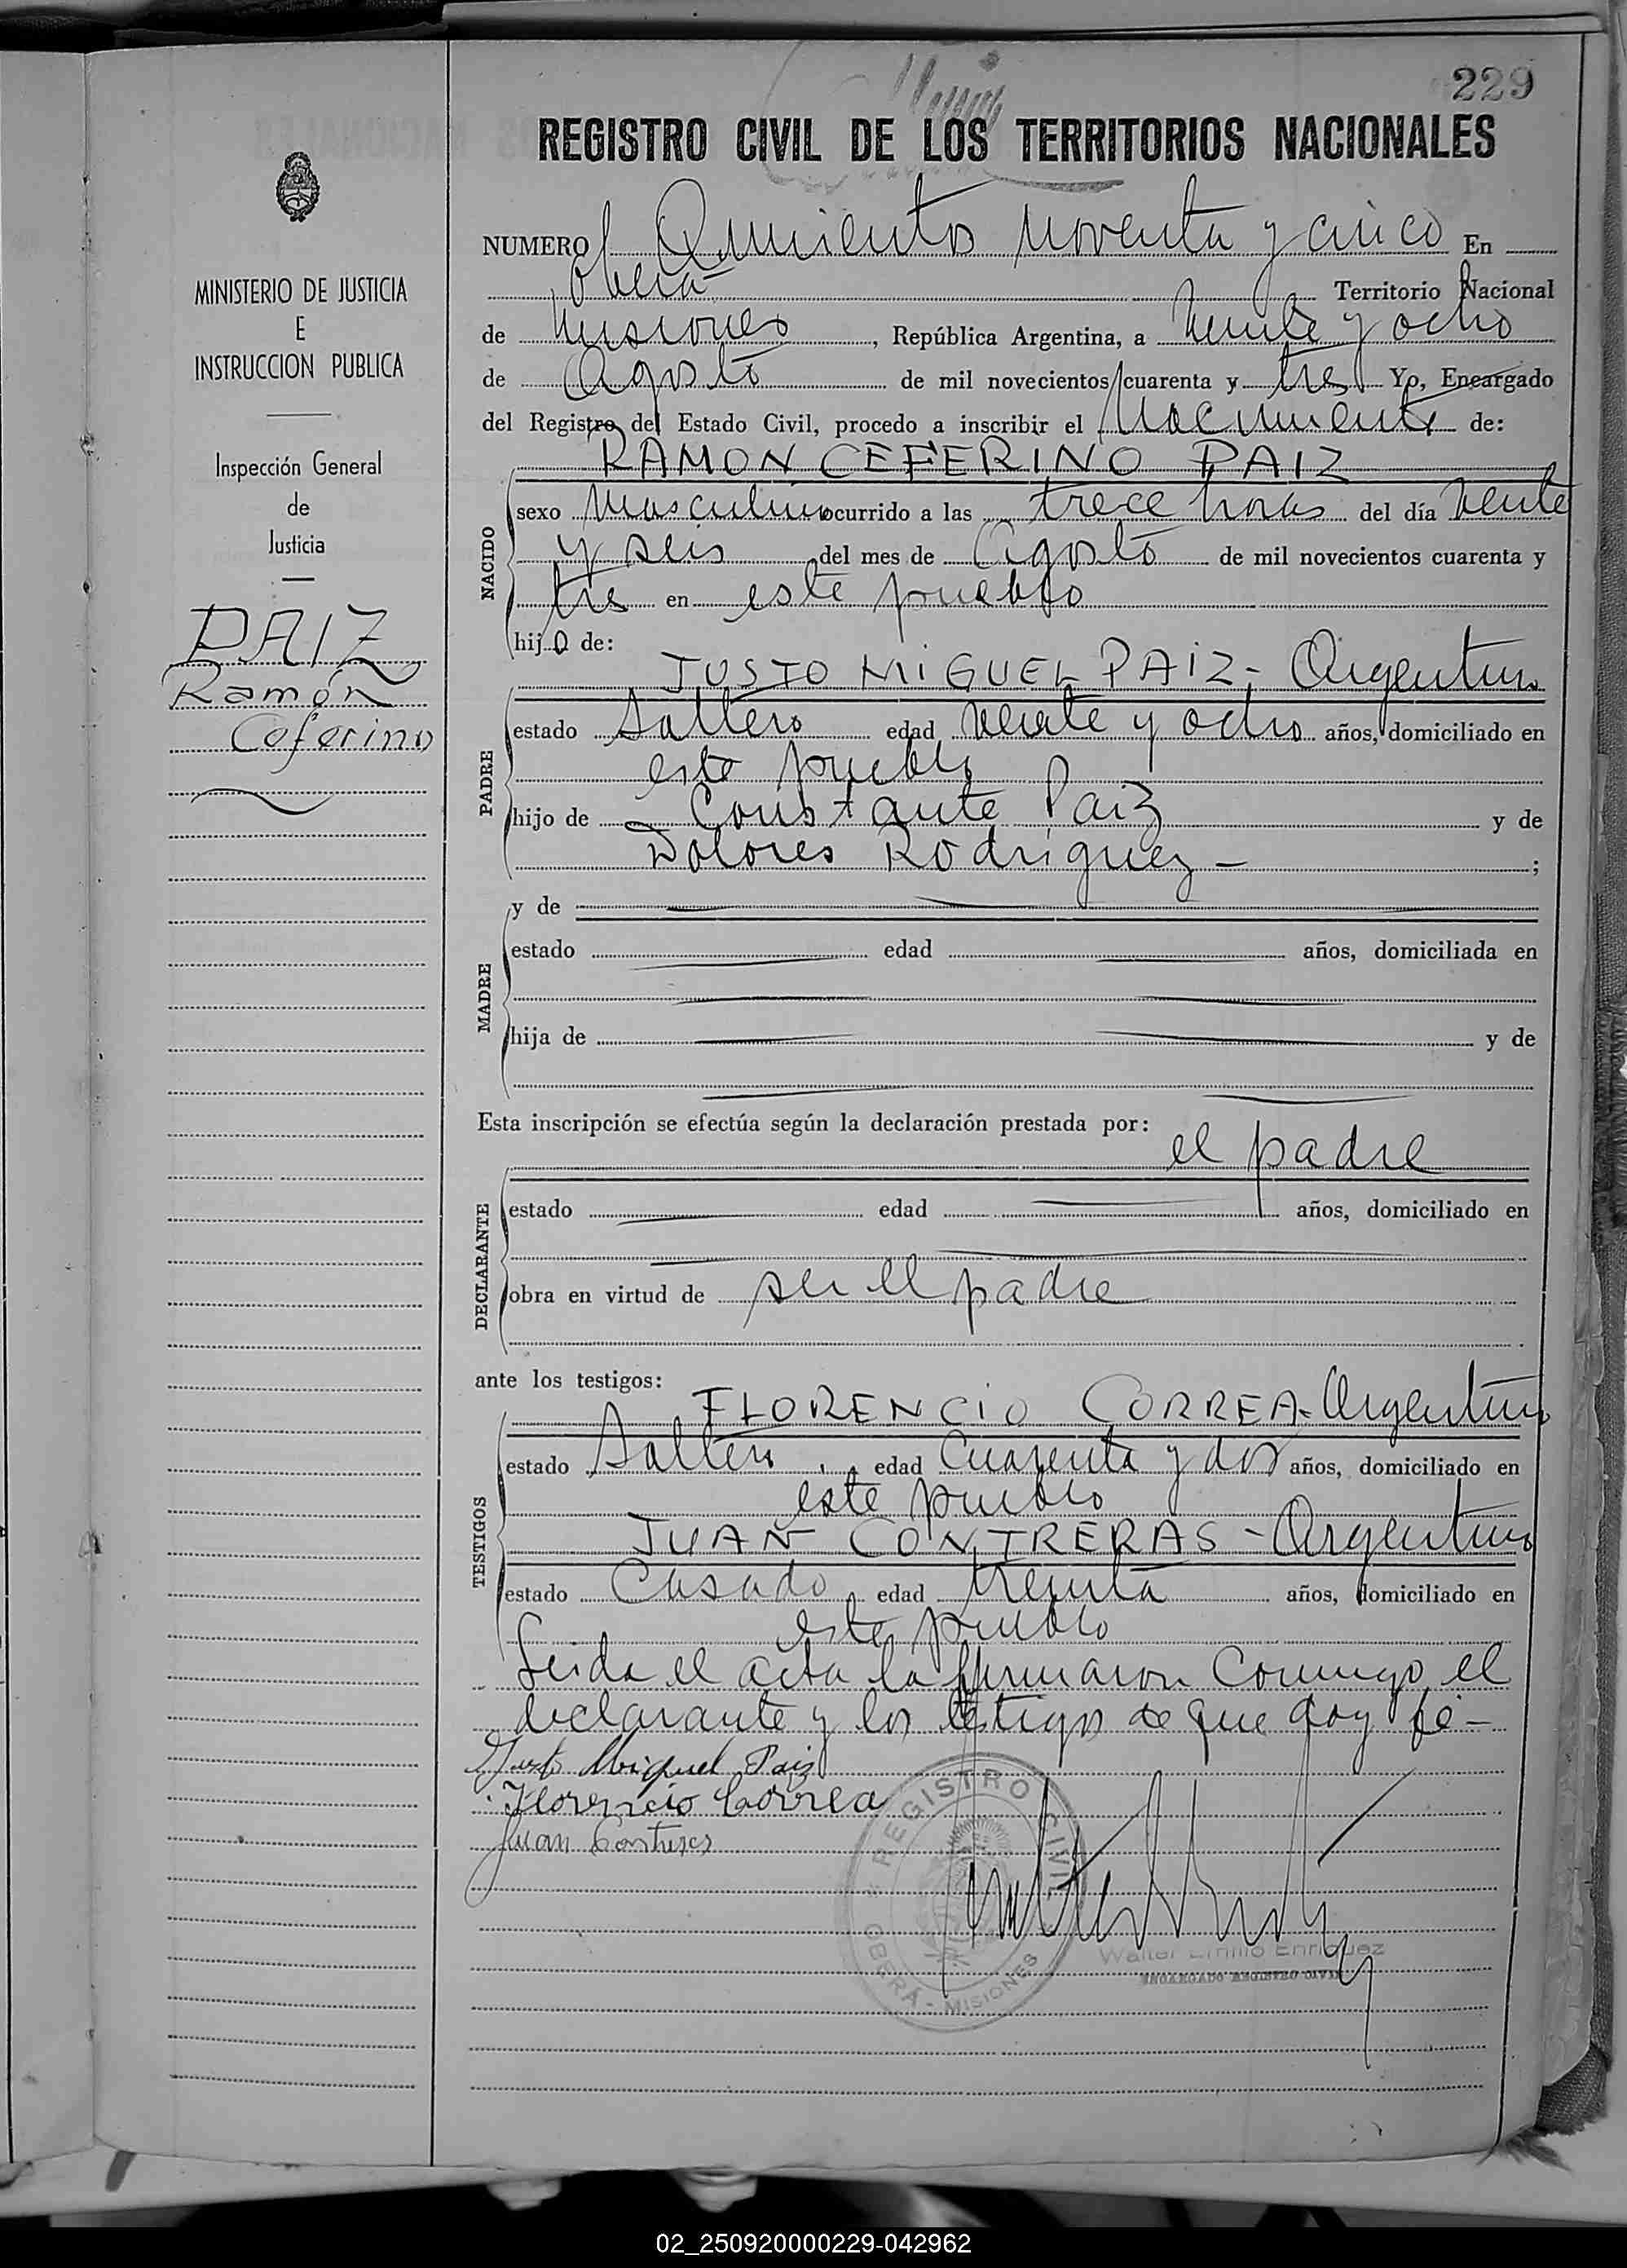 229
REGISTRO CIVIL DE LOS TERRITORIOS NACIONALES
NUMERO Quinientos Noventa y cinco En
Oberá Territorio Nacional
de Misiones, República Argentina, a Veinte y ocho
de Agosto de mil novecientos cuarenta y tres Yo, Encargado
del Registro del Estado Civil, procedo a inscribir el Nacimiento de:
RAMON CEFERINO PAIZ
NACIDO
sexo Masculino ocurrido a las trece horas del día Veinte
y seis del mes de Agosto de mil novecientos cuarenta y
tres en este pueblo
hijo de:
JUSTO MIGUEL PAIZ- Argentino
PADRE
estado Soltero edad Veinte y ocho años, domiciliado en
este pueblo
hijo de Constante Paiz y de
Dolores Rodriguez - ;
y de
MADRE
estado edad años, domiciliada en
hija de y de
Esta inscripción se efectúa según la declaración prestada por:
el padre
DECLARANTE
estado edad años, domiciliado en
obra en virtud de ser el padre
ante los testigos:
FLORENCIO CORREA- Argentino
TESTIGOS
estado Soltero, edad Cuarenta y dos años, domiciliado en
este pueblo
JUAN CONTRERAS - Argentino
estado Casado edad treinta años, domiciliado en
este pueblo
Leida el acta la firmaron Conmigo el
declarante y los testigos de que doy fé-
Justo Miguel Paiz
Florencio Correa
Juan Contreras
REGISTRO CIVIL
OBERÁ - MISIONES
Walter Emilio Enriquez
ENCARGADO REGISTRO CIVIL
MINISTERIO DE JUSTICIA
E
INSTRUCCION PUBLICA
Inspección General
de
Justicia
PAIZ
Ramón
Ceferino
02_250920000229-042962